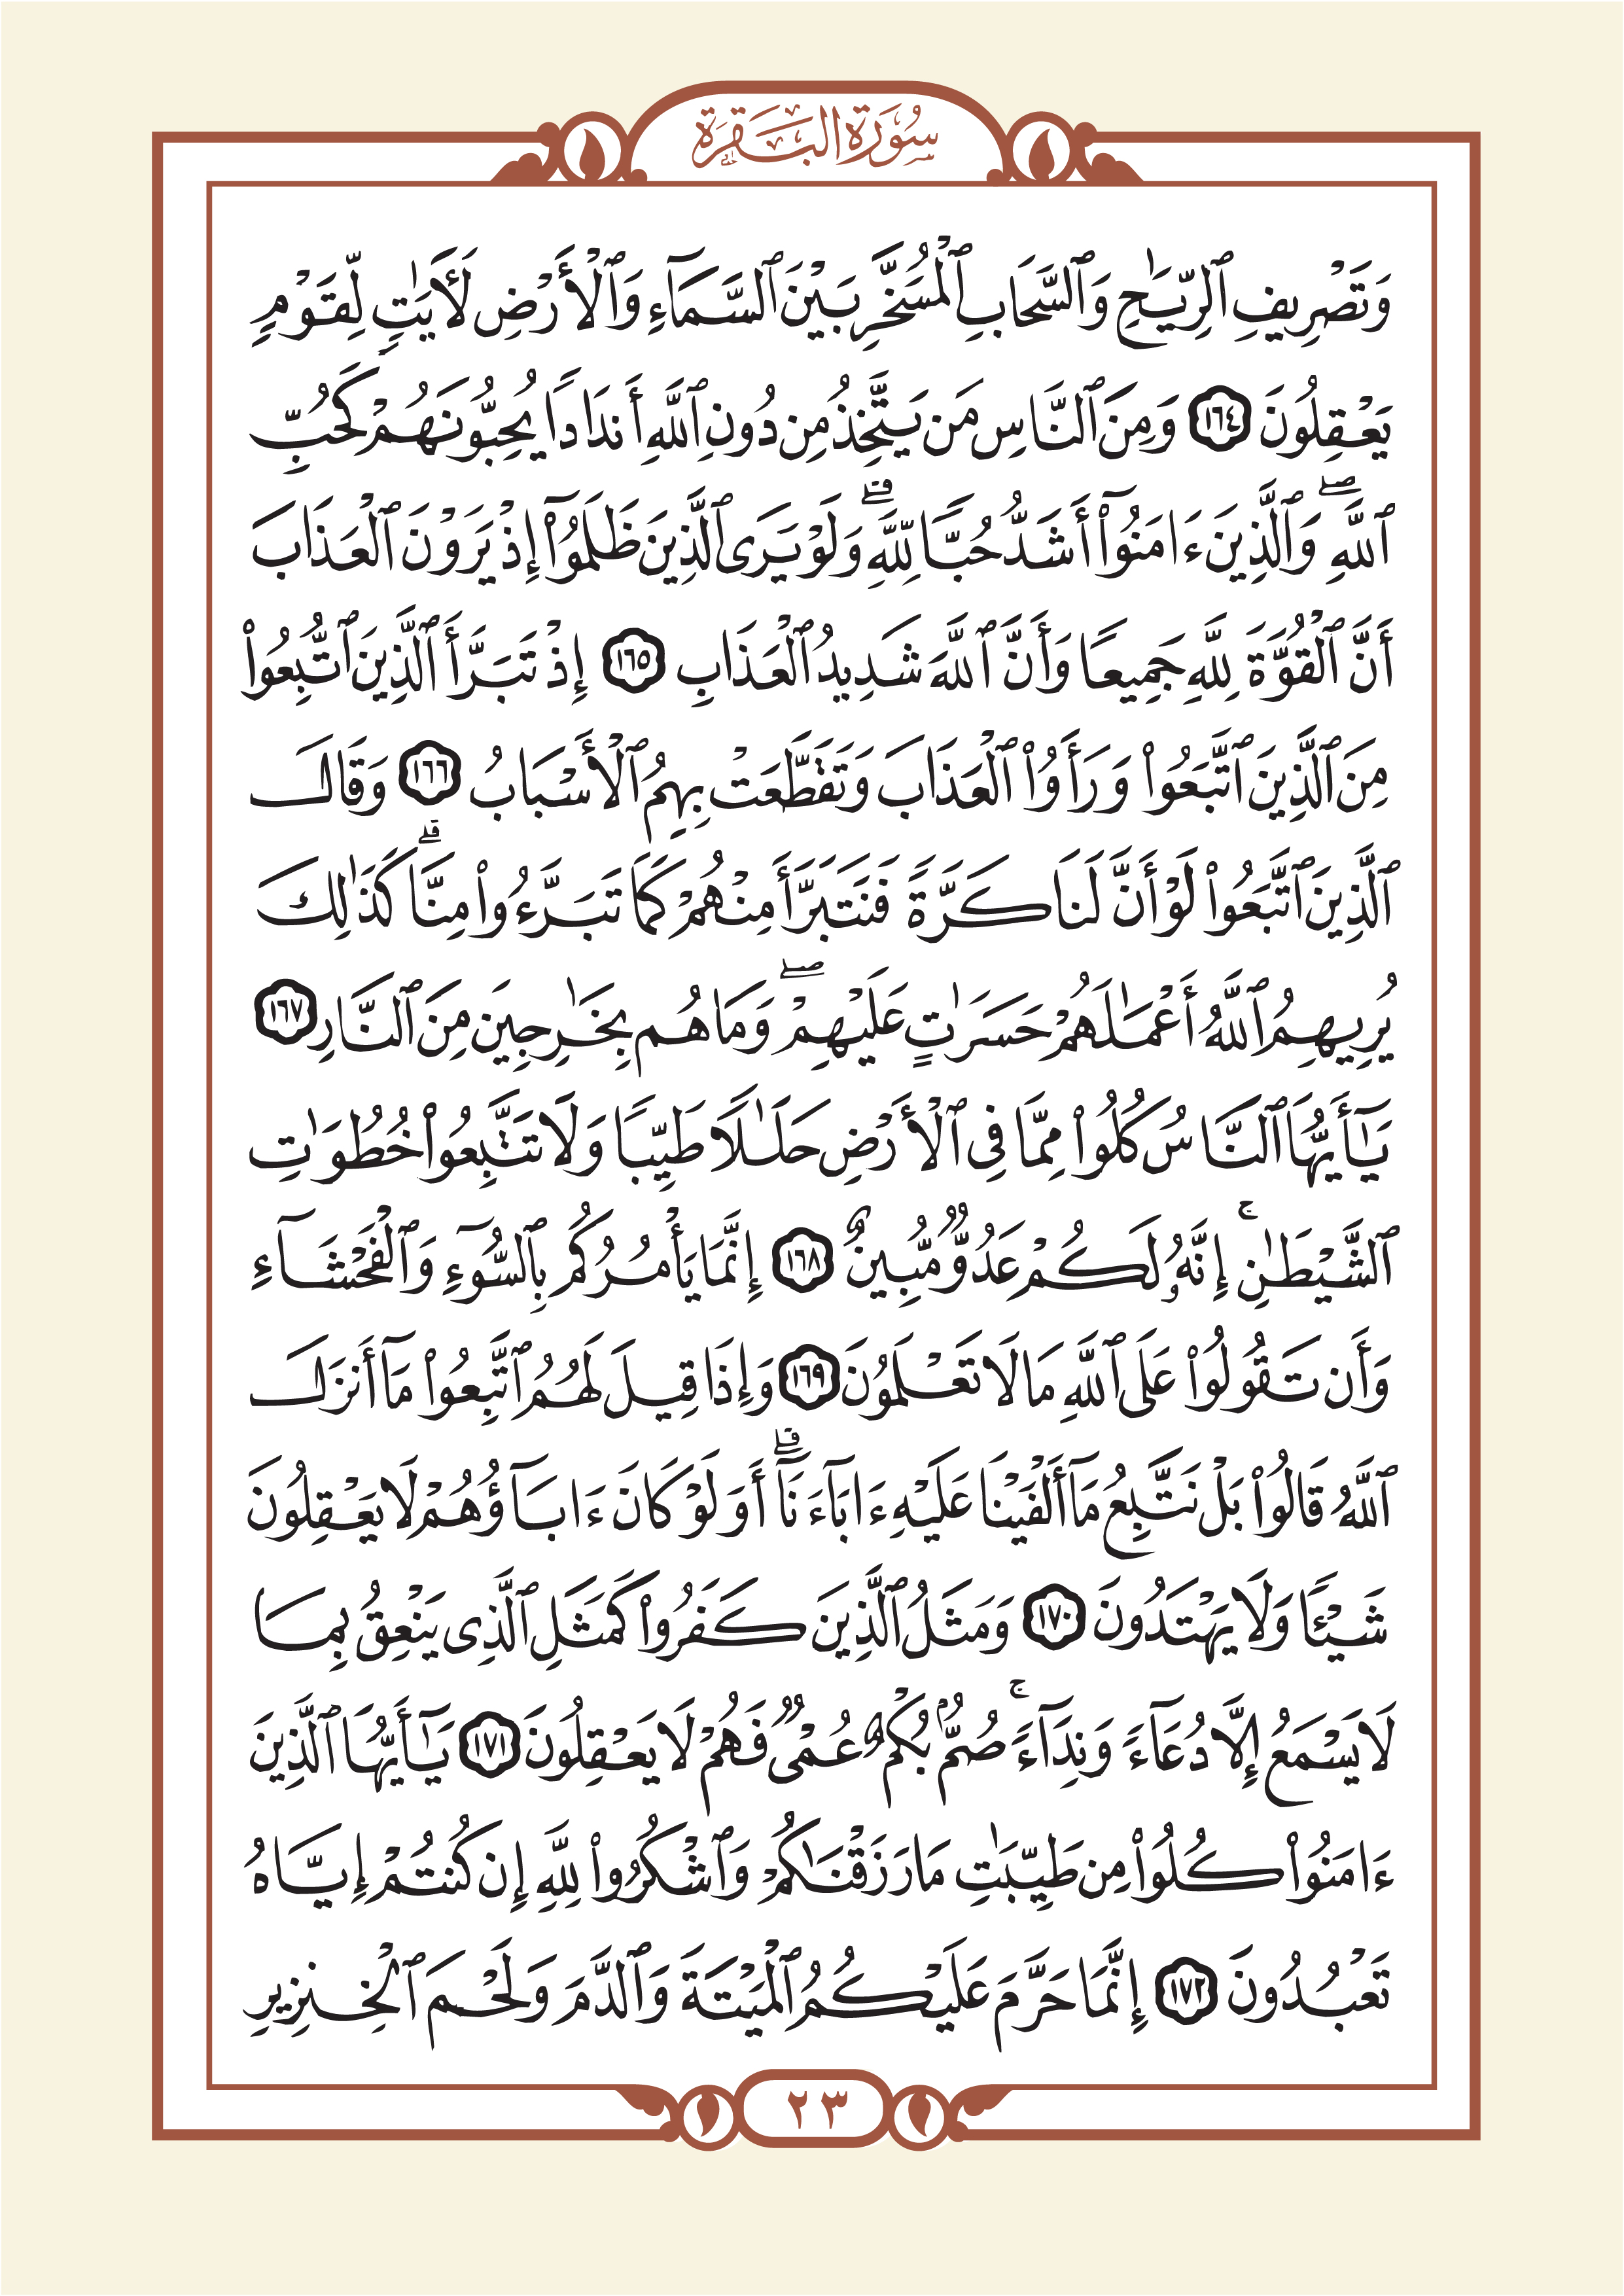 سُورَةُ البَقَرَةِ
وَتَصْرِيفِ ٱلرِّيَـٰحِ وَٱلسَّحَابِ ٱلْمُسَخَّرِ بَيْنَ ٱلسَّمَآءِ وَٱلْأَرْضِ لَـَٔايَـٰتٍ لِّقَوْمٍ
يَعْقِلُونَ ١٦٤ وَمِنَ ٱلنَّاسِ مَن يَتَّخِذُ مِن دُونِ ٱللَّهِ أَندَادًا يُحِبُّونَهُمْ كَحُبِّ
ٱللَّهِ ۖ وَٱلَّذِينَ ءَامَنُوٓا۟ أَشَدُّ حُبًّا لِّلَّهِ ۗ وَلَوْ يَرَى ٱلَّذِينَ ظَلَمُوٓا۟ إِذْ يَرَوْنَ ٱلْعَذَابَ
أَنَّ ٱلْقُوَّةَ لِلَّهِ جَمِيعًا وَأَنَّ ٱللَّهَ شَدِيدُ ٱلْعَذَابِ ١٦٥ إِذْ تَبَرَّأَ ٱلَّذِينَ ٱتُّبِعُوا۟
مِنَ ٱلَّذِينَ ٱتَّبَعُوا۟ وَرَأَوُا۟ ٱلْعَذَابَ وَتَقَطَّعَتْ بِهِمُ ٱلْأَسْبَابُ ١٦٦ وَقَالَ
ٱلَّذِينَ ٱتَّبَعُوا۟ لَوْ أَنَّ لَنَا كَرَّةً فَنَتَبَرَّأَ مِنْهُمْ كَمَا تَبَرَّءُوا۟ مِنَّا ۗ كَذَٰلِكَ
يُرِيهِمُ ٱللَّهُ أَعْمَـٰلَهُمْ حَسَرَٰتٍ عَلَيْهِمْ ۖ وَمَا هُم بِخَـٰرِجِينَ مِنَ ٱلنَّارِ ١٦٧
يَـٰٓأَيُّهَا ٱلنَّاسُ كُلُوا۟ مِمَّا فِى ٱلْأَرْضِ حَلَـٰلًا طَيِّبًا وَلَا تَتَّبِعُوا۟ خُطُوَٰتِ
ٱلشَّيْطَـٰنِ ۚ إِنَّهُۥ لَكُمْ عَدُوٌّ مُّبِينٌ ١٦٨ إِنَّمَا يَأْمُرُكُم بِٱلسُّوٓءِ وَٱلْفَحْشَآءِ
وَأَن تَقُولُوا۟ عَلَى ٱللَّهِ مَا لَا تَعْلَمُونَ ١٦٩ وَإِذَا قِيلَ لَهُمُ ٱتَّبِعُوا۟ مَآ أَنزَلَ
ٱللَّهُ قَالُوا۟ بَلْ نَتَّبِعُ مَآ أَلْفَيْنَا عَلَيْهِ ءَابَآءَنَآ ۗ أَوَلَوْ كَانَ ءَابَآؤُهُمْ لَا يَعْقِلُونَ
شَيْـًٔا وَلَا يَهْتَدُونَ ١٧٠ وَمَثَلُ ٱلَّذِينَ كَفَرُوا۟ كَمَثَلِ ٱلَّذِى يَنْعِقُ بِمَا
لَا يَسْمَعُ إِلَّا دُعَآءً وَنِدَآءً ۚ صُمٌّۢ بُكْمٌ عُمْىٌ فَهُمْ لَا يَعْقِلُونَ ١٧١ يَـٰٓأَيُّهَا ٱلَّذِينَ
ءَامَنُوا۟ كُلُوا۟ مِن طَيِّبَـٰتِ مَا رَزَقْنَـٰكُمْ وَٱشْكُرُوا۟ لِلَّهِ إِن كُنتُمْ إِيَّاهُ
تَعْبُدُونَ ١٧٢ إِنَّمَا حَرَّمَ عَلَيْكُمُ ٱلْمَيْتَةَ وَٱلدَّمَ وَلَحْمَ ٱلْخِنزِيرِ
٢٣